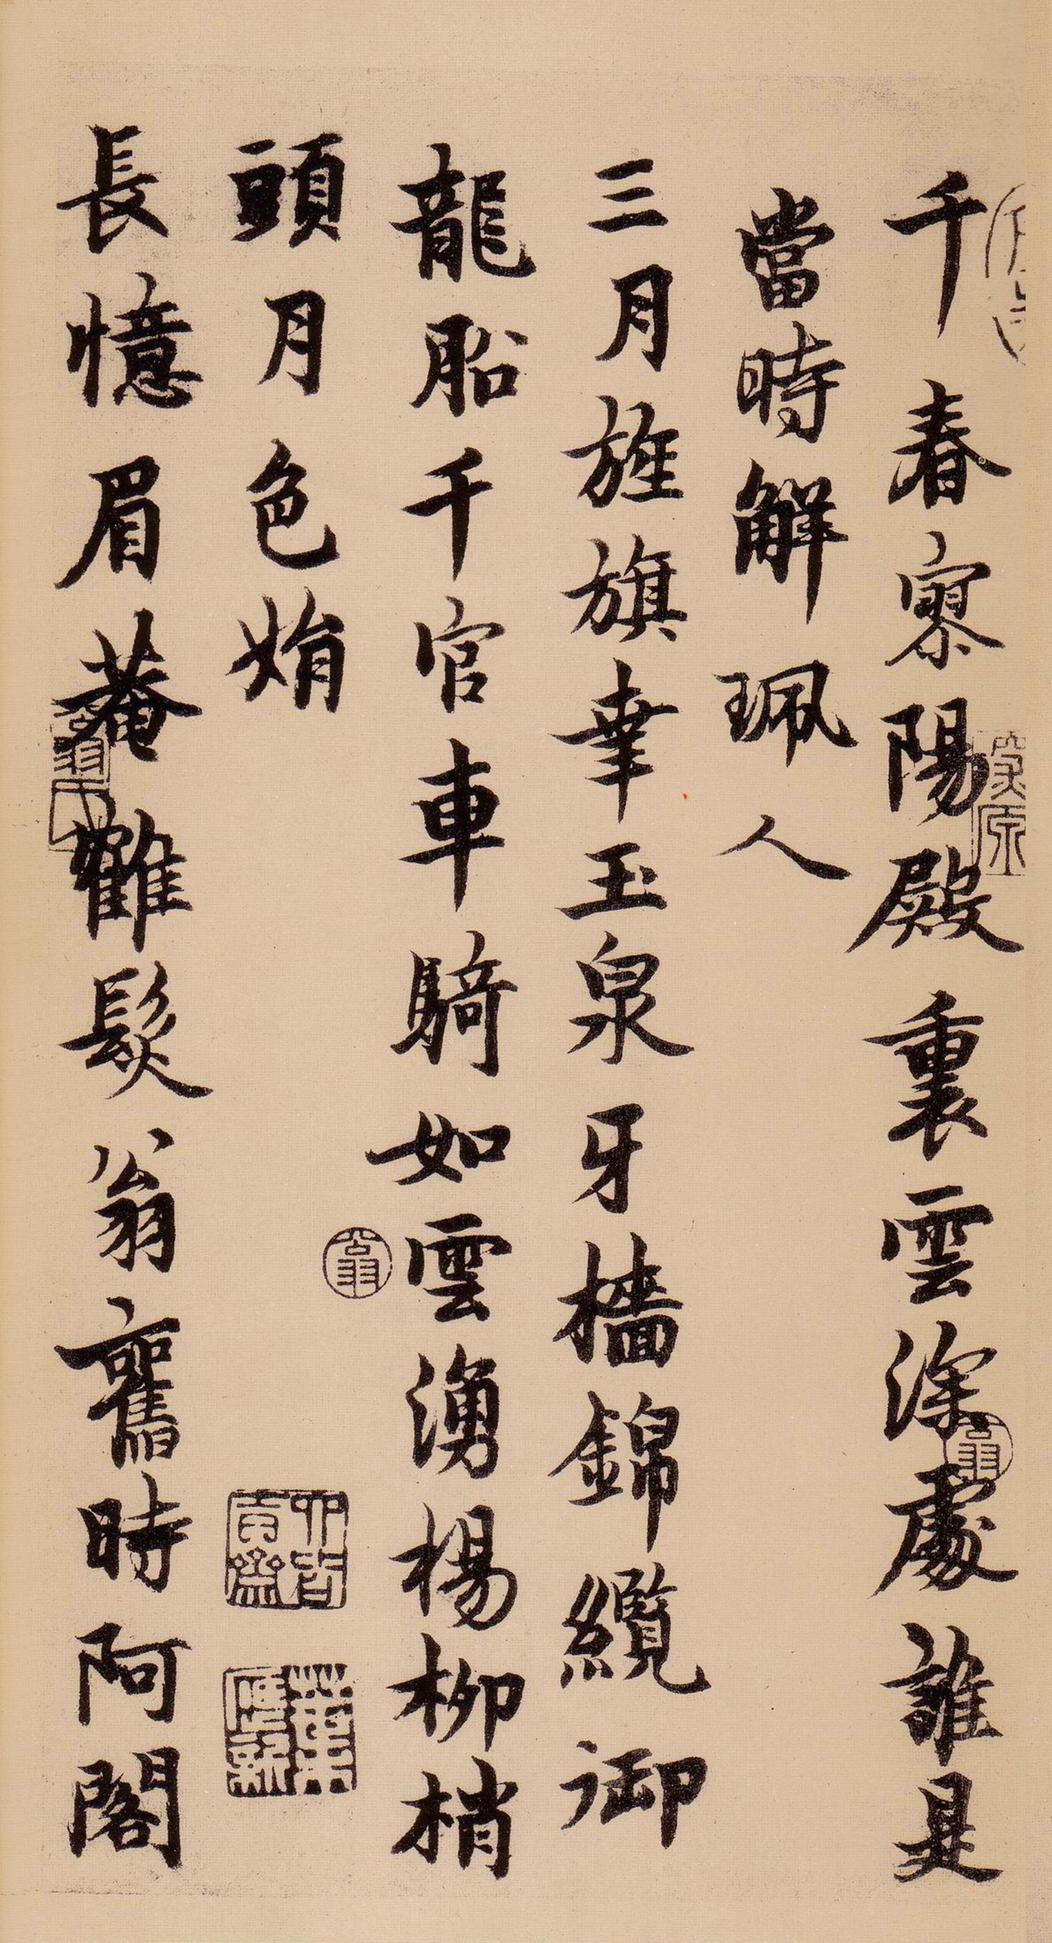 千春寥陽殿裏雲深處誰是
當時解珮人
三月旌旗幸玉泉牙檣錦纜御
龍船千官車騎如雲湧楊柳梢
頭月色娟
長憶眉菴鶴髮翁舊時阿閣